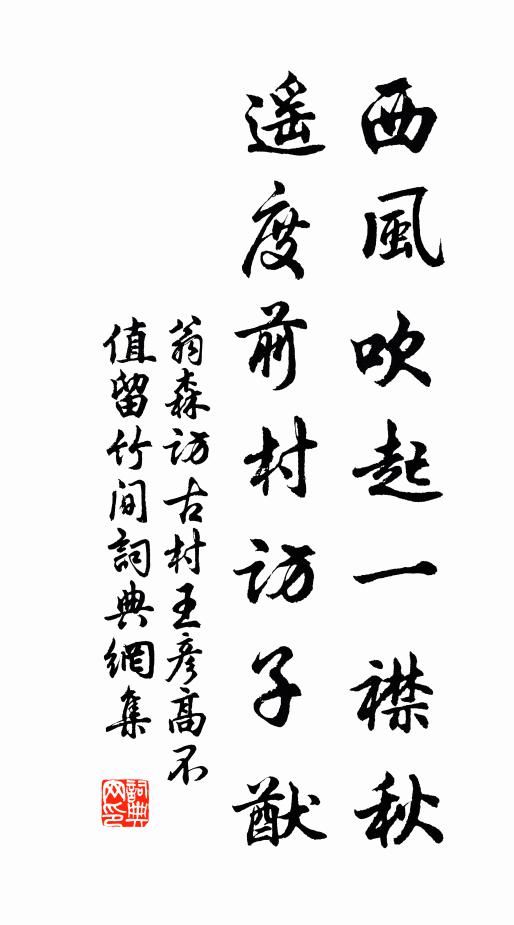 西風吹起一襟秋
遥度前村訪子猷
翁森訪古村王彦高不
值留竹间詞典網集
詞典
网印